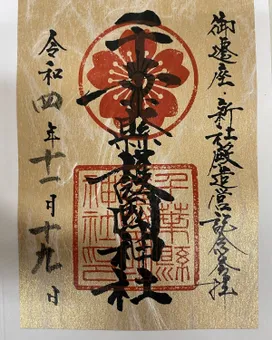 御遷座・新社殿造営記念奉拝
千葉縣護國神社
千葉縣護國神社印
令和四年十二月十九日